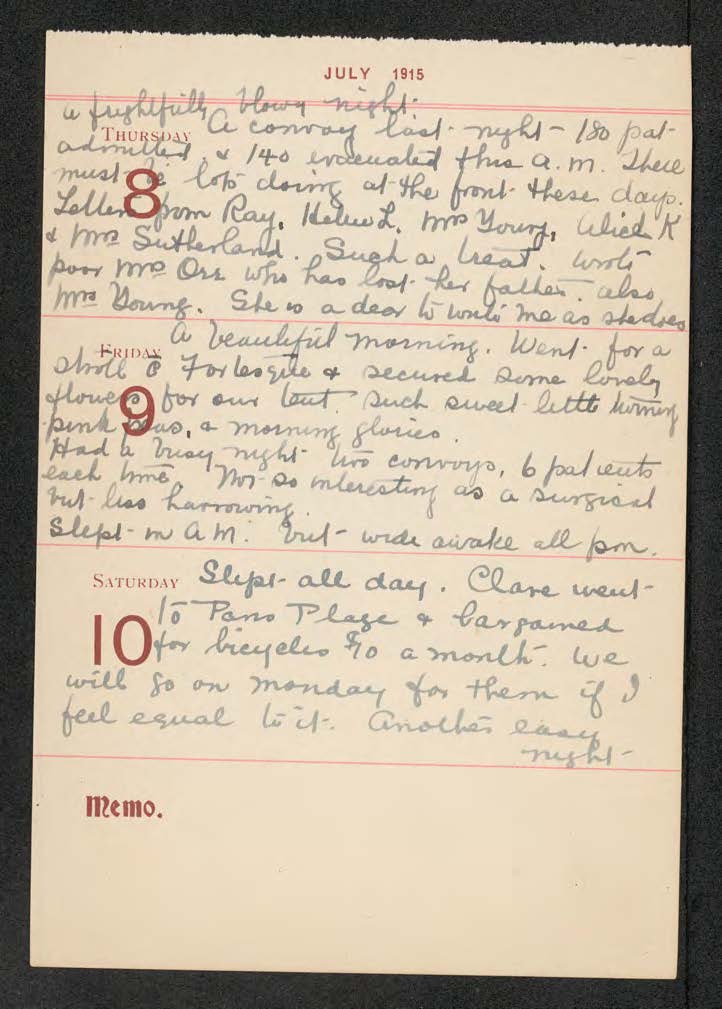 JULY 1915
a frightfully blowy night.
THURSDAY
8
A convoy last night - 180 pat-
admitted, & 140 evacuated this a.m. There
must be lots doing at the front these days.
Letters from Ray, Helen L. Mrs Young, Alice K
& Mrs Sutherland. Such a treat. Wrote
poor Mrs Orr who has lost her father. also
Mrs Young. She is a dear to write me as she does
FRIDAY
9
A beautiful morning. Went for a
stroll c̄ Fortesque & secured some lovely
flowers for our tent. Such sweet little
pink, & morning glories.
Had a busy night two convoys, 6 patients
each time. Not so interesting as a surgical
but less harrowing.
Slept in A.M. but wide awake all pm.
SATURDAY
10
Slept all day. Clare went
to Paris Plage & bargained
for bicycles $10 a month. We
will go on Monday for them if I
feel equal to it. Another easy
night -
Memo.